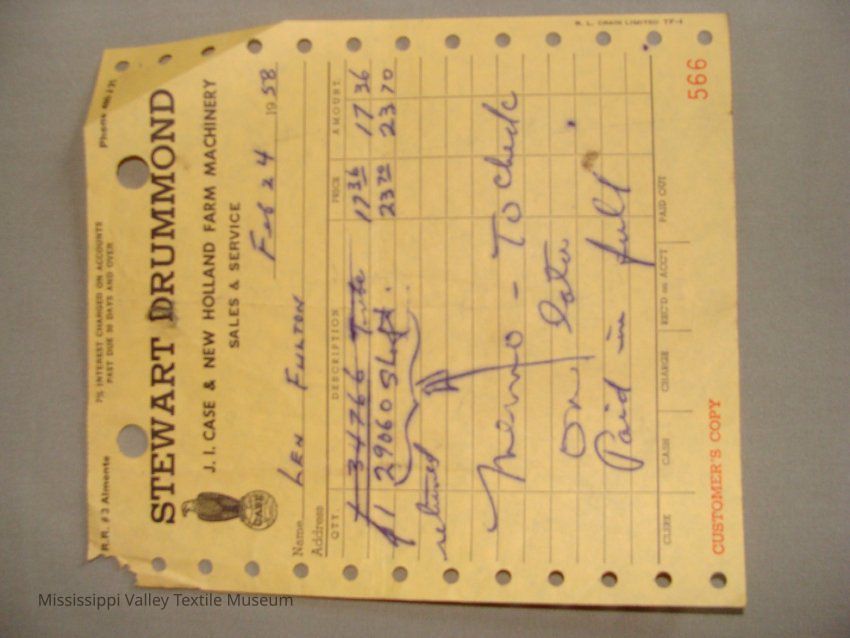 R. L. CRAIN LIMITED TF-4
7% INTEREST CHARGED ON ACCOUNTS
PAST DUE 30 DAYS AND OVER
R.R. #3 Almonte
Phone
STEWART DRUMMOND
J. I. CASE & NEW HOLLAND FARM MACHINERY
SALES & SERVICE
CASE
Feb 24 1958
Name LEN FULTON
Address
QTY. DESCRIPTION PRICE AMOUNT
1 34766 17 36 17 36
1 29060 Shaft 23 70 23 70
returned
Memo - To check
on later
Paid in full
CLERK CASH CHARGE REC'D on ACC'T PAID OUT
CUSTOMER'S COPY
566
Mississippi Valley Textile Museum